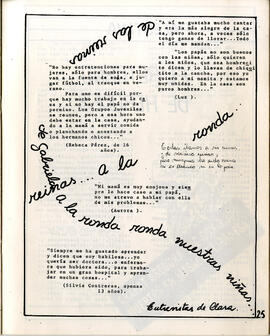 de las reinas
"A mí me gustaba mucho cantar
y era la más alegre de la casa,
pero ahora, a veces sólo
tengo ganas de llorar... Todo
el día me mandan..."
"Los papás no son buenos
con las niñas, sólo quieren
a los niños, que son hombres,
te dicen y lo llevan
a la cancha, por eso yo
quiero a mi mamá y estamos
unidas. En la casa somos
dos partidos.
(Luz).
"No hay entretenciones para mujeres,
sólo para hombres, ellos
van a la fuente de soda, a jugar
fútbol, al tranque en verano.
Para uno es difícil porque
hay mucho trabajo en la casa
y si no hay el papá no da
permiso. Los Grupos Juveniles
se reunen, pero a esa hora uno
está ocupada en la casa, ayudando
a la mamá a servir comida
o planchando o acostando
hermanos chicos".
(Rebeca Pérez, de 16
años).
ronda.
de Gabriela
reinas... a la
a la ronda ronda nuestras niñas...
"Mi mamá es muy enojona y siempre
lo hace callar mi papá,
no me atrevo a hablar con ella
de mis problemas..."
(Aurora).
"Siempre me ha gustado aprender
y dicen que soy habilosa...yo
quería ser doctora...o enfermera
que hubiera sido, para trabajar
en un gran hospital y aprender
muchas cosas".
(Silvia Contreras, apenas
13 años).
Entrevistas de Clara.
25